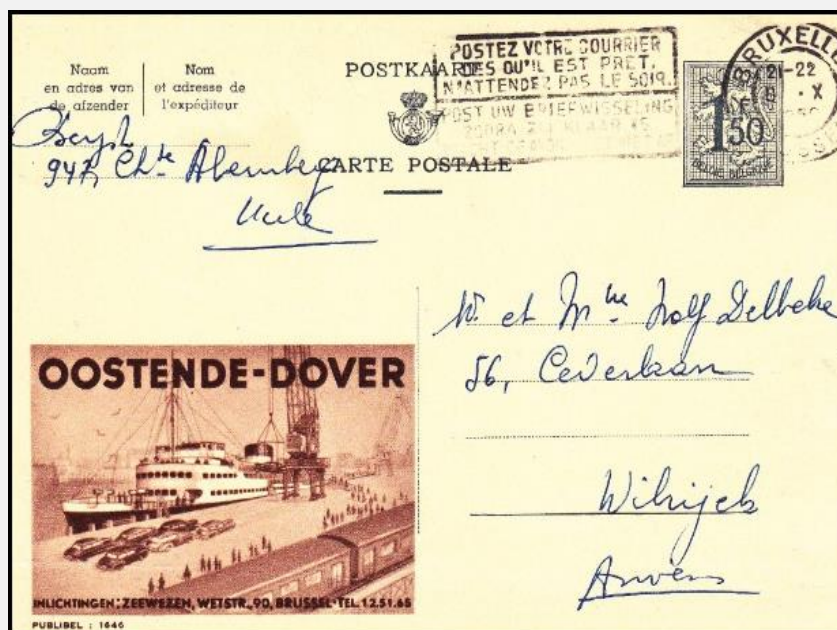 Naam
en adres van
de afzender
Nom
et adresse de
l'expéditeur
POSTKAART
CARTE POSTALE
POSTEZ VOTRE COURRIER
DES QU'IL EST PRET.
N'ATTENDEZ PAS LE SOIR.
POST UW BRIEFWISSELING
ZODRA ZIJ KLAAR IS
BRUXELLE
21-22
9 X
1F50
BELGIE BELGIQUE
947, Ch
Uccle
et Mme Delbeke
56, Cederlaan
Wilrijck
Anvers
OOSTENDE-DOVER
INLICHTINGEN: ZEEWEZEN, WETSTR., 90, BRUSSEL-TEL. 12.51.65
PUBLIBEL : 1646